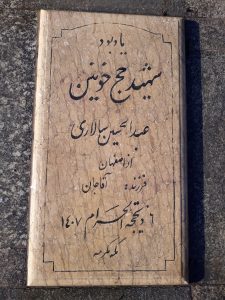 یادبود
شهید حج خونین
عبدالحسین سالاری
از اصفهان
فرزند آقاجان
۶ ذیحجه الحرام ۱۴۰۷
مکه مکرمه